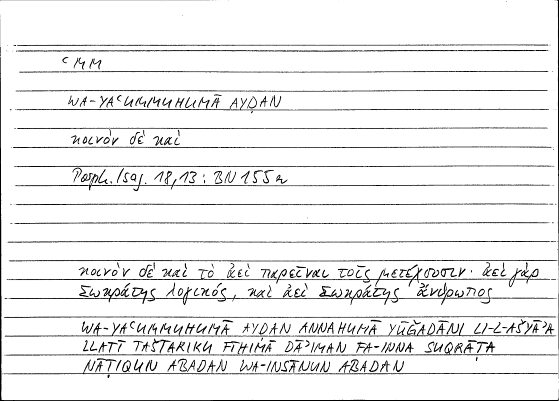 ʿMM
WA-YAʿUMMUHUMĀ AYḌAN
κοινὸν δὲ καὶ
Porph. Isag. 18,13 : BN 155a
κοινὸν δὲ καὶ τὸ ἀεὶ παρεῖναι τοῖς μετέχουσιν· ἀεὶ γὰρ
Σωκράτης λογικός, καὶ ἀεὶ Σωκράτης ἄνθρωπος
WA-YAʿUMMUHUMĀ AYḌAN ANNAHUMĀ YŪǦADĀNI LI-L-AŠYĀʾA
LLATĪ TAŠTARIKU FĪHIMĀ DĀʾIMAN FA-INNA SUQRĀṬA
NĀṬIQUN ABADAN WA-INSĀNUN ABADAN